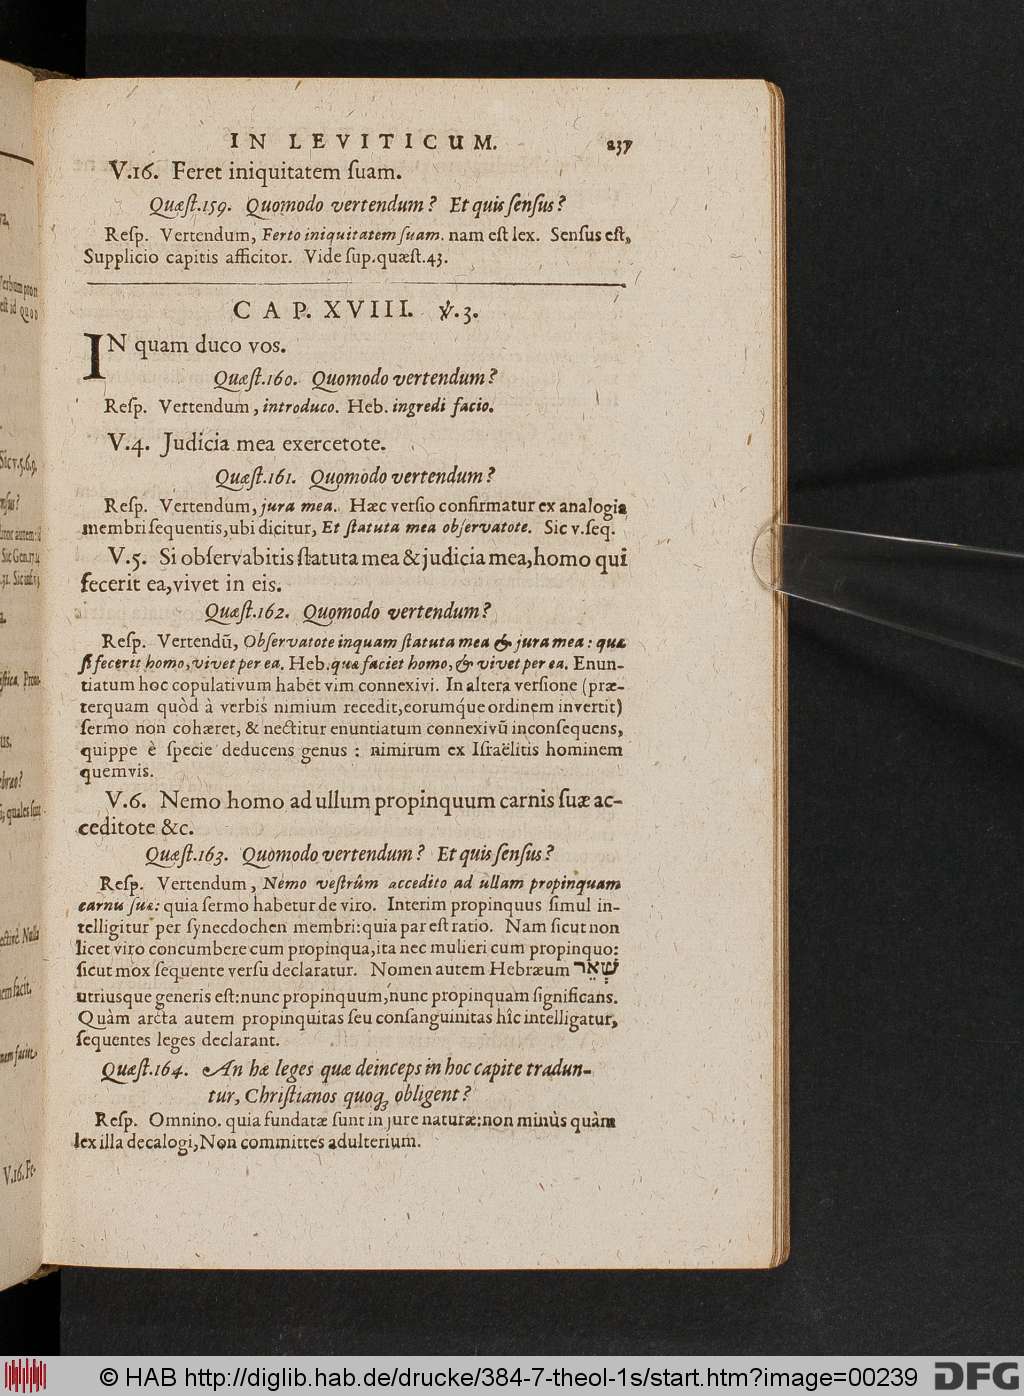 IN LEVITICUM. 237
V.16. Feret iniquitatem ſuam.
Quæſt.159. Quomodo vertendum? Et quis ſenſus?
Reſp. Vertendum, Ferto iniquitatem ſuam. nam eſt lex. Senſus eſt,
Supplicio capitis afficitor. Vide ſup.quæſt.43.
CAP. XVIII. ℣.3.
IN quam duco vos.
Quæſt.160. Quomodo vertendum?
Reſp. Vertendum, introduco. Heb. ingredi facio.
V.4. Judicia mea exercetote.
Quæſt.161. Quomodo vertendum?
Reſp. Vertendum, jura mea. Hæc verſio confirmatur ex analogia
membri ſequentis, ubi dicitur, Et ſtatuta mea obſervatote. Sic v.ſeq.
V.5. Si obſervabitis ſtatuta mea & judicia mea, homo qui
fecerit ea, vivet in eis.
Quæſt.162. Quomodo vertendum?
Reſp. Vertendū, Obſervatote inquam ſtatuta mea & jura mea: quæ
ſi fecerit homo, vivet per ea. Heb. quæ faciet homo, & vivet per ea. Enun-
tiatum hoc copulativum habet vim connexivi. In altera verſione (præ-
terquam quòd à verbis nimium recedit, eorumq́ue ordinem invertit)
ſermo non cohæret, & nectitur enuntiatum connexivū inconſequens,
quippe è ſpecie deducens genus: nimirum ex Iſraëlitis hominem
quemvis.
V.6. Nemo homo ad ullum propinquum carnis ſuæ ac-
ceditote &c.
Quæſt.163. Quomodo vertendum? Et quis ſenſus?
Reſp. Vertendum, Nemo veſtrûm accedito ad ullam propinquam
carnis ſuæ: quia ſermo habetur de viro. Interim propinquus ſimul in-
telligitur per ſynecdochen membri: quia par eſt ratio. Nam ſicut non
licet viro concumbere cum propinqua, ita nec mulieri cum propinquo:
ſicut mox ſequente verſu declaratur. Nomen autem Hebræum שְׁאֵר
utriusque generis eſt: nunc propinquum, nunc propinquam ſignificans.
Quàm arcta autem propinquitas ſeu conſanguinitas hîc intelligatur,
ſequentes leges declarant.
Quæſt.164. An hæ leges quæ deinceps in hoc capite tradun-
tur, Chriſtianos quoq; obligent?
Reſp. Omnino. quia fundatæ ſunt in jure naturæ: non minùs quàm
lex illa decalogi, Non committes adulterium.
V.16. Fe-
© HAB http://diglib.hab.de/drucke/384-7-theol-1s/start.htm?image=00239
DFG